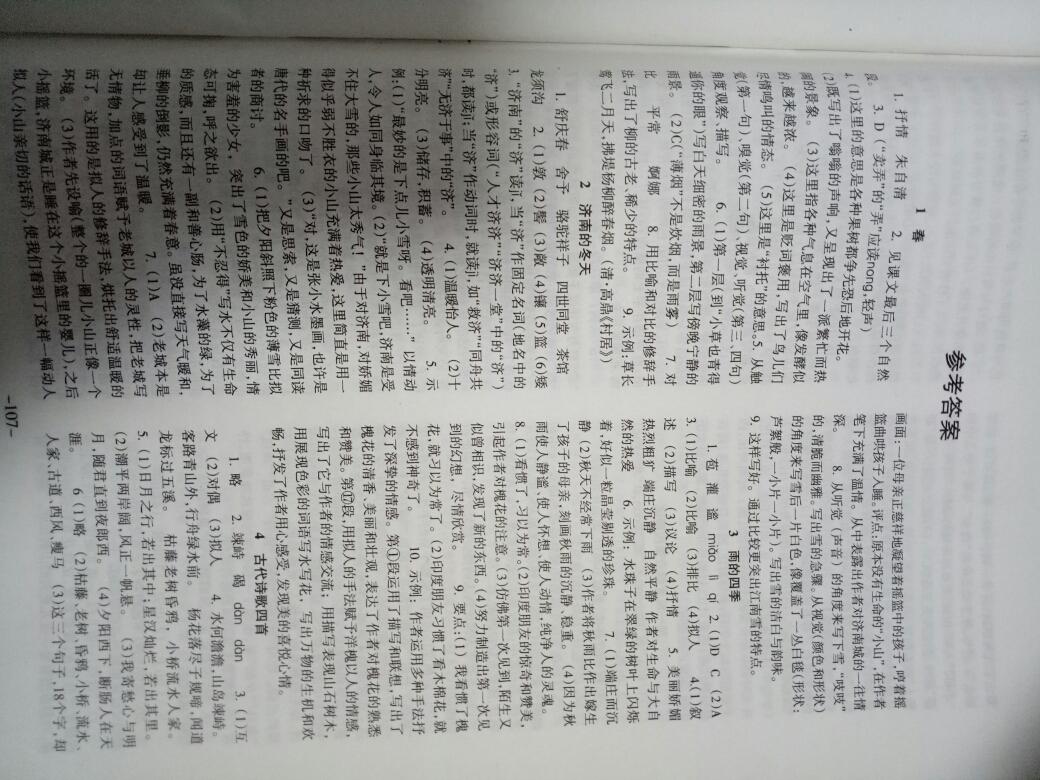 参考答案
1 春
1. 抒情 朱自清 2. 见课文最后三个自然
段。 3. D(“卖弄”的“弄”应读nòng,轻声)
4. (1)这里的意思是各种果树都争先恐后地开花。
(2)既写出了嗡嗡的声响,又呈现出了一派繁忙而热
闹的景象。 (3)这里指各种气息在空气里,像发酵似
的,越来越浓。 (4)这里是贬词褒用,写出了鸟儿们
尽情鸣叫的情态。 (5)这里是“衬托”的意思。5. 从触
觉(第一句)、嗅觉(第二句)、视觉、听觉(第三、四句)
角度观察、描写。 6. (1)第一层(到“小草也青得
逼你的眼”)写白天细密的雨景,第二层写傍晚宁静的
雨景。 (2)C(“薄烟”不是炊烟,而是雨雾) 7. 对
比 平常 婀娜 8. 用比喻和对比的修辞手
法,写出了柳的古老、稀少的特点。 9. 示例:草长
莺飞二月天,拂堤杨柳醉春烟。(清·高鼎《村居》)
2 济南的冬天
1. 舒庆春 舍予 骆驼祥子 四世同堂 茶馆
龙须沟 2. (1)敦 (2)髻 (3)敞 (4)镶 (5)篮 (6)矮
3. “济南”的“济”读jǐ,当“济”作固定名词(地名中的
“济”)或形容词(“人才济济”“济济一堂”中的“济”)
时,都读jǐ;当“济”作动词时,就读jì,如“救济”“同舟共
济”“无济于事”中的“济”。 4. (1)温暖怡人。 (2)十
分明亮。 (3)储存,积蓄。 (4)透明清亮。 5. 示
例:(1)“最妙的是下点儿小雪呀。看吧……”以情动
人,令人如同身临其境。(2)“就是下小雪吧,济南是受
不住大雪的,那些小山太秀气!”由于对济南,对娇媚
得似乎弱不胜衣的小山充满着热爱,这里简直是用一
种祈求的口吻了。 (3)“对,这是张小水墨画,也许是
唐代的名手画的吧。”又是思索,又是猜测,又是同读
者的商讨。 6. (1)把夕阳斜照下粉色的薄雪比拟
为害羞的少女, 突出了雪色的娇美和小山的秀丽,情
态可掬,呼之欲出。 (2)用“不忍得”写水不仅有生命
的质感,而且还有一副和善心肠,为了水藻的绿,为了
垂柳的倒影,仍然充满着春意。虽没直接写天气暖和,
却让人感受到了温暖。 7. (1)A (2)老城本是
无情物,加点的词语赋予老城以人的灵性,把老城写
活了。这用的是拟人的修辞手法,烘托出舒适温暖的
环境。 (3)作者先设喻(整个的一圈儿小山正像一个
小摇篮,济南城正是睡在这个小摇篮里的婴儿),之后
拟人(小山亲切的话语),使我们看到了这样一幅动人
画面:一位母亲正慈祥地凝望着摇篮中的孩子,哼着摇
篮曲哄孩子入睡。评点:原本没有生命的“小山”,在作者
笔下充满了温情。从中表露出作者对济南城的一往情
深。 8. 从听觉(声音)的角度来写下雪,“吱吱”
的,清脆而幽雅。写出雪的急骤。从视觉(颜色和形状)
的角度来写雪后一片白色,像覆盖了一丛白毯(形状:
芦絮般,一小片一小片)。写出雪的洁白与韵味。
9. 这样写好。通过比较更突出江南雪的特点。
3 雨的四季
1. 苞 灌 谧 miǎo lì qǐ 2. (1)D C (2)A
3. (1)比喻 (2)比喻 (3)排比 (4)拟人 4.(1)叙
述 (2)描写 (3)议论 (4)抒情 5. 美丽娇媚
热烈粗犷 端庄沉静 自然平静 作者对生命与大自
然的热爱 6. 示例: 水珠子在翠绿的树叶上闪烁
着,好似一粒晶莹剔透的珍珠。 7. (1)端庄而沉
静 (2)秋天不经常下雨 (3)作者将秋雨比作出嫁生
了孩子的母亲,刻画秋雨的沉静、稳重。 (4)因为秋
雨使人静谧,使人怀想,使人动情,纯净人的灵魂。
8. (1)看惯了,习以为常。(2)印度朋友的惊奇和赞美,
引起作者对槐花的注意。 (3)仿佛第一次见到,陌生又
似曾相识,发现了新的东西。(4)努力制造出第一次见
到的幻想, 尽情欣赏。 9. 要点:(1) 我看惯了槐
花,就习以为常了。(2)印度朋友习惯了看木棉花,就
不感到神奇了。 10. 示例: 作者运用多种手法抒
发了深挚的情感。第①段运用了描写和联想,写出了
槐花的清香、美丽和壮观,表达了作者对槐花的熟悉
和赞美。第⑰段,用拟人的手法赋予洋槐以人的情感,
写出了它与作者的情感交流; 用描写表现山石树木,
用展现色彩的词语写水写花, 写出万物的生机和欢
畅,抒发了作者用心感受,发现美的喜悦心情。
4 古代诗歌四首
1. 略 2. 竦峙 碣 dòn dàn 3. (1)互
文 (2)对偶 (3)拟人 4. 水何澹澹,山岛竦峙。
客路青山外,行舟绿水前。 杨花落尽子规啼,闻道
龙标过五溪。 枯藤老树昏鸦, 小桥流水人家。
5. (1)日月之行,若出其中; 星汉灿烂,若出其里。
(2)潮平两岸阔,风正一帆悬。 (3)我寄愁心与明
月, 随君直到夜郎西。 (4)夕阳西下, 断肠人在天
涯。 6 (1)略 (2)枯藤、老树、昏鸦、小桥、流水、
人家、古道、西风、瘦马 (3)这三个句子,18个字,却
-107-